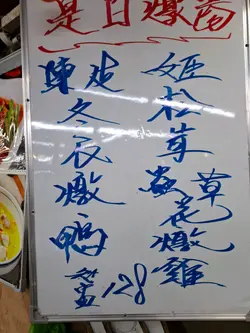 是日燉
姬松茸蟲草花燉雞
陳皮冬瓜燉鴨
128